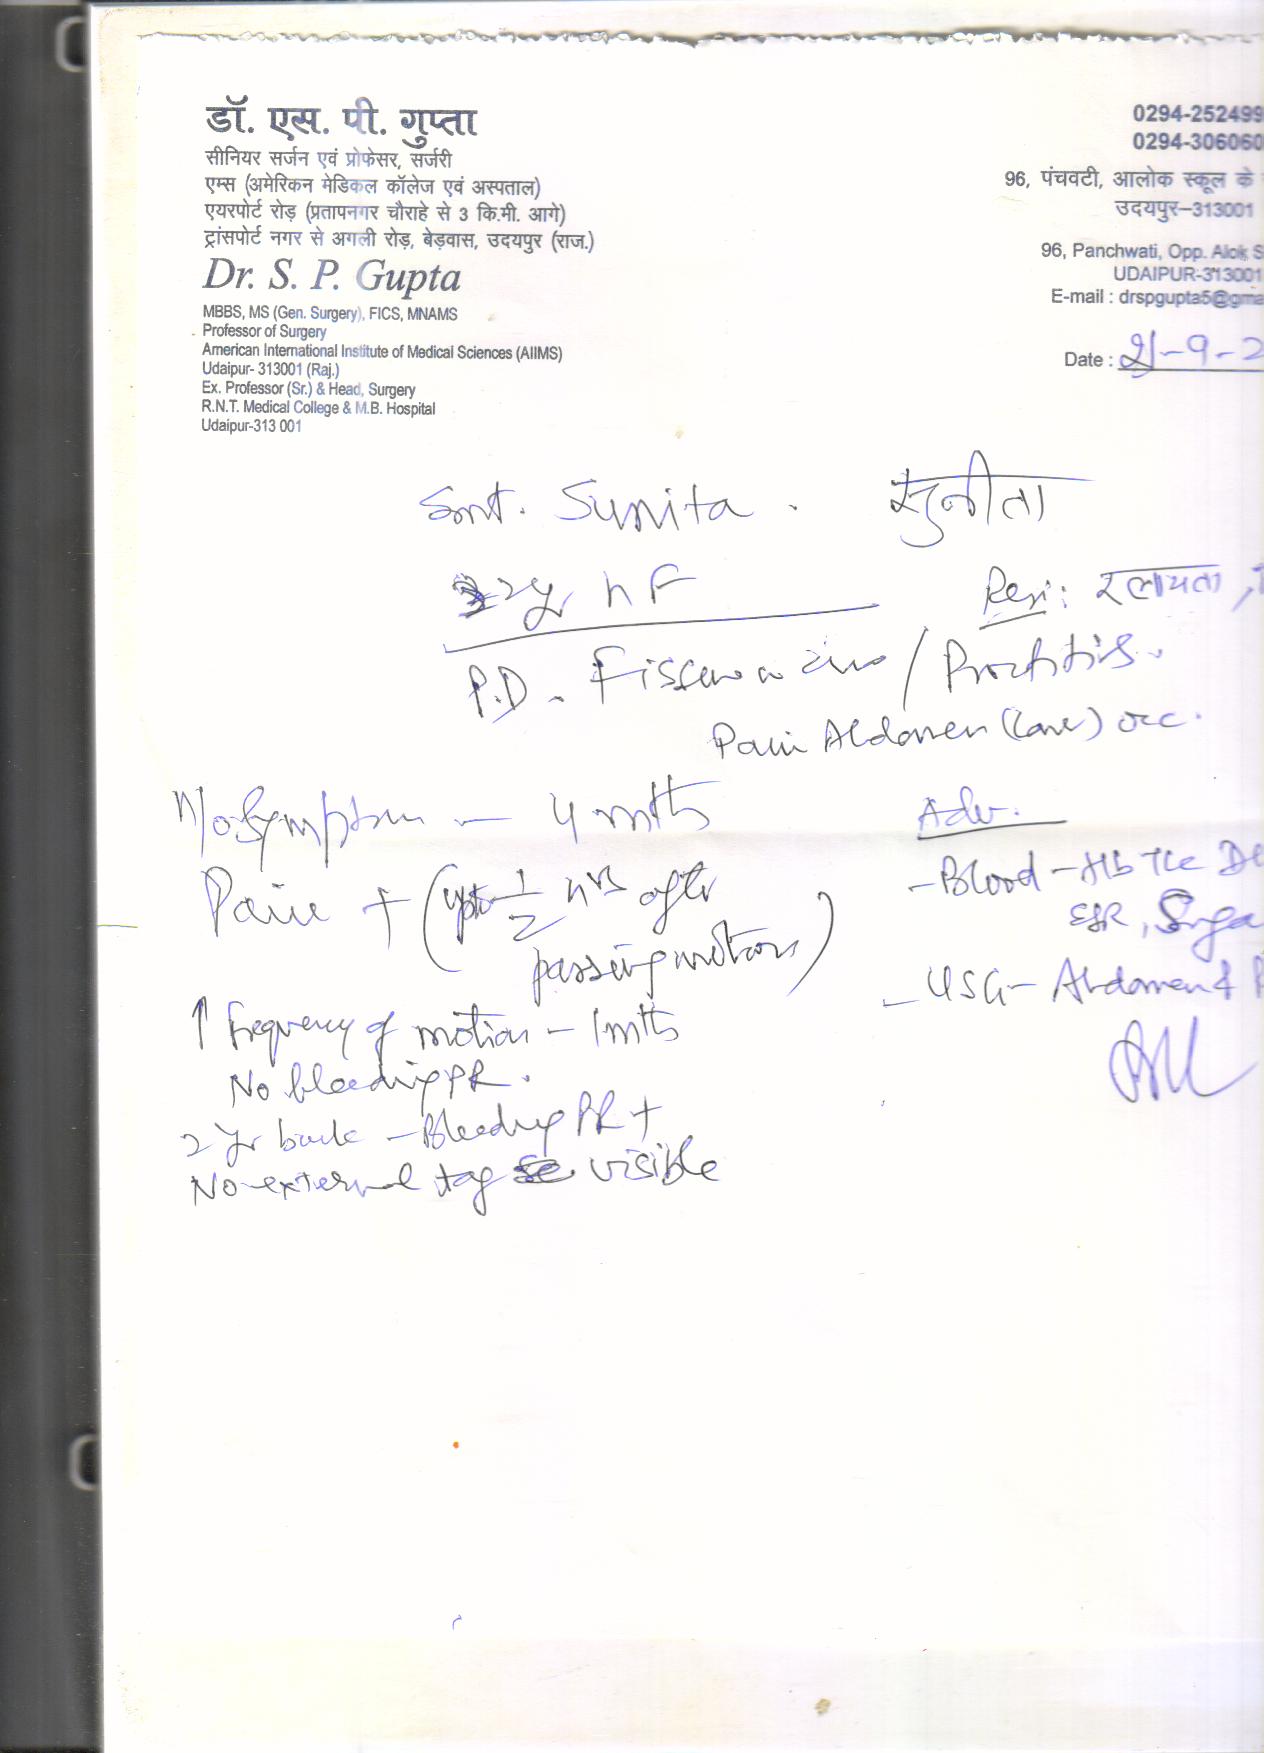 डॉ. एस. पी. गुप्ता
सीनियर सर्जन एवं प्रोफेसर, सर्जरी
एम्स (अमेरिकन मेडिकल कॉलेज एवं अस्पताल)
एयरपोर्ट रोड़ (प्रतापनगर चौराहे से 3 कि.मी. आगे)
ट्रांसपोर्ट नगर से अगली रोड़, बेड़वास, उदयपुर (राज.)
Dr. S. P. Gupta
MBBS, MS (Gen. Surgery), FICS, MNAMS
Professor of Surgery
American International Institute of Medical Sciences (AIIMS)
Udaipur- 313001 (Raj.)
Ex. Professor (Sr.) & Head, Surgery
R.N.T. Medical College & M.B. Hospital
Udaipur-313 001
0294-252499
0294-306060
96, पंचवटी, आलोक स्कूल के
उदयपुर-313001
96, Panchwati, Opp. Alok S
UDAIPUR-313001
E-mail : drspgupta5@gma
Date : 21-9-2
Smt. Sunita. सुनीता
F
Resi: रलायता,
P.D. Fissure in ano / Proctitis.
Pain Abdomen (Low) occ.
Symptom - 4 mths
Pain + (upto 1/2 hrs after
passing motions)
↑ frequency of motion - 1 mths
No bleeding PR.
2 yr back - Bleeding PR +
No external tag visible
Adv.
- Blood - Hb TLC D
ESR, Suga
- USG - Abdomen & P